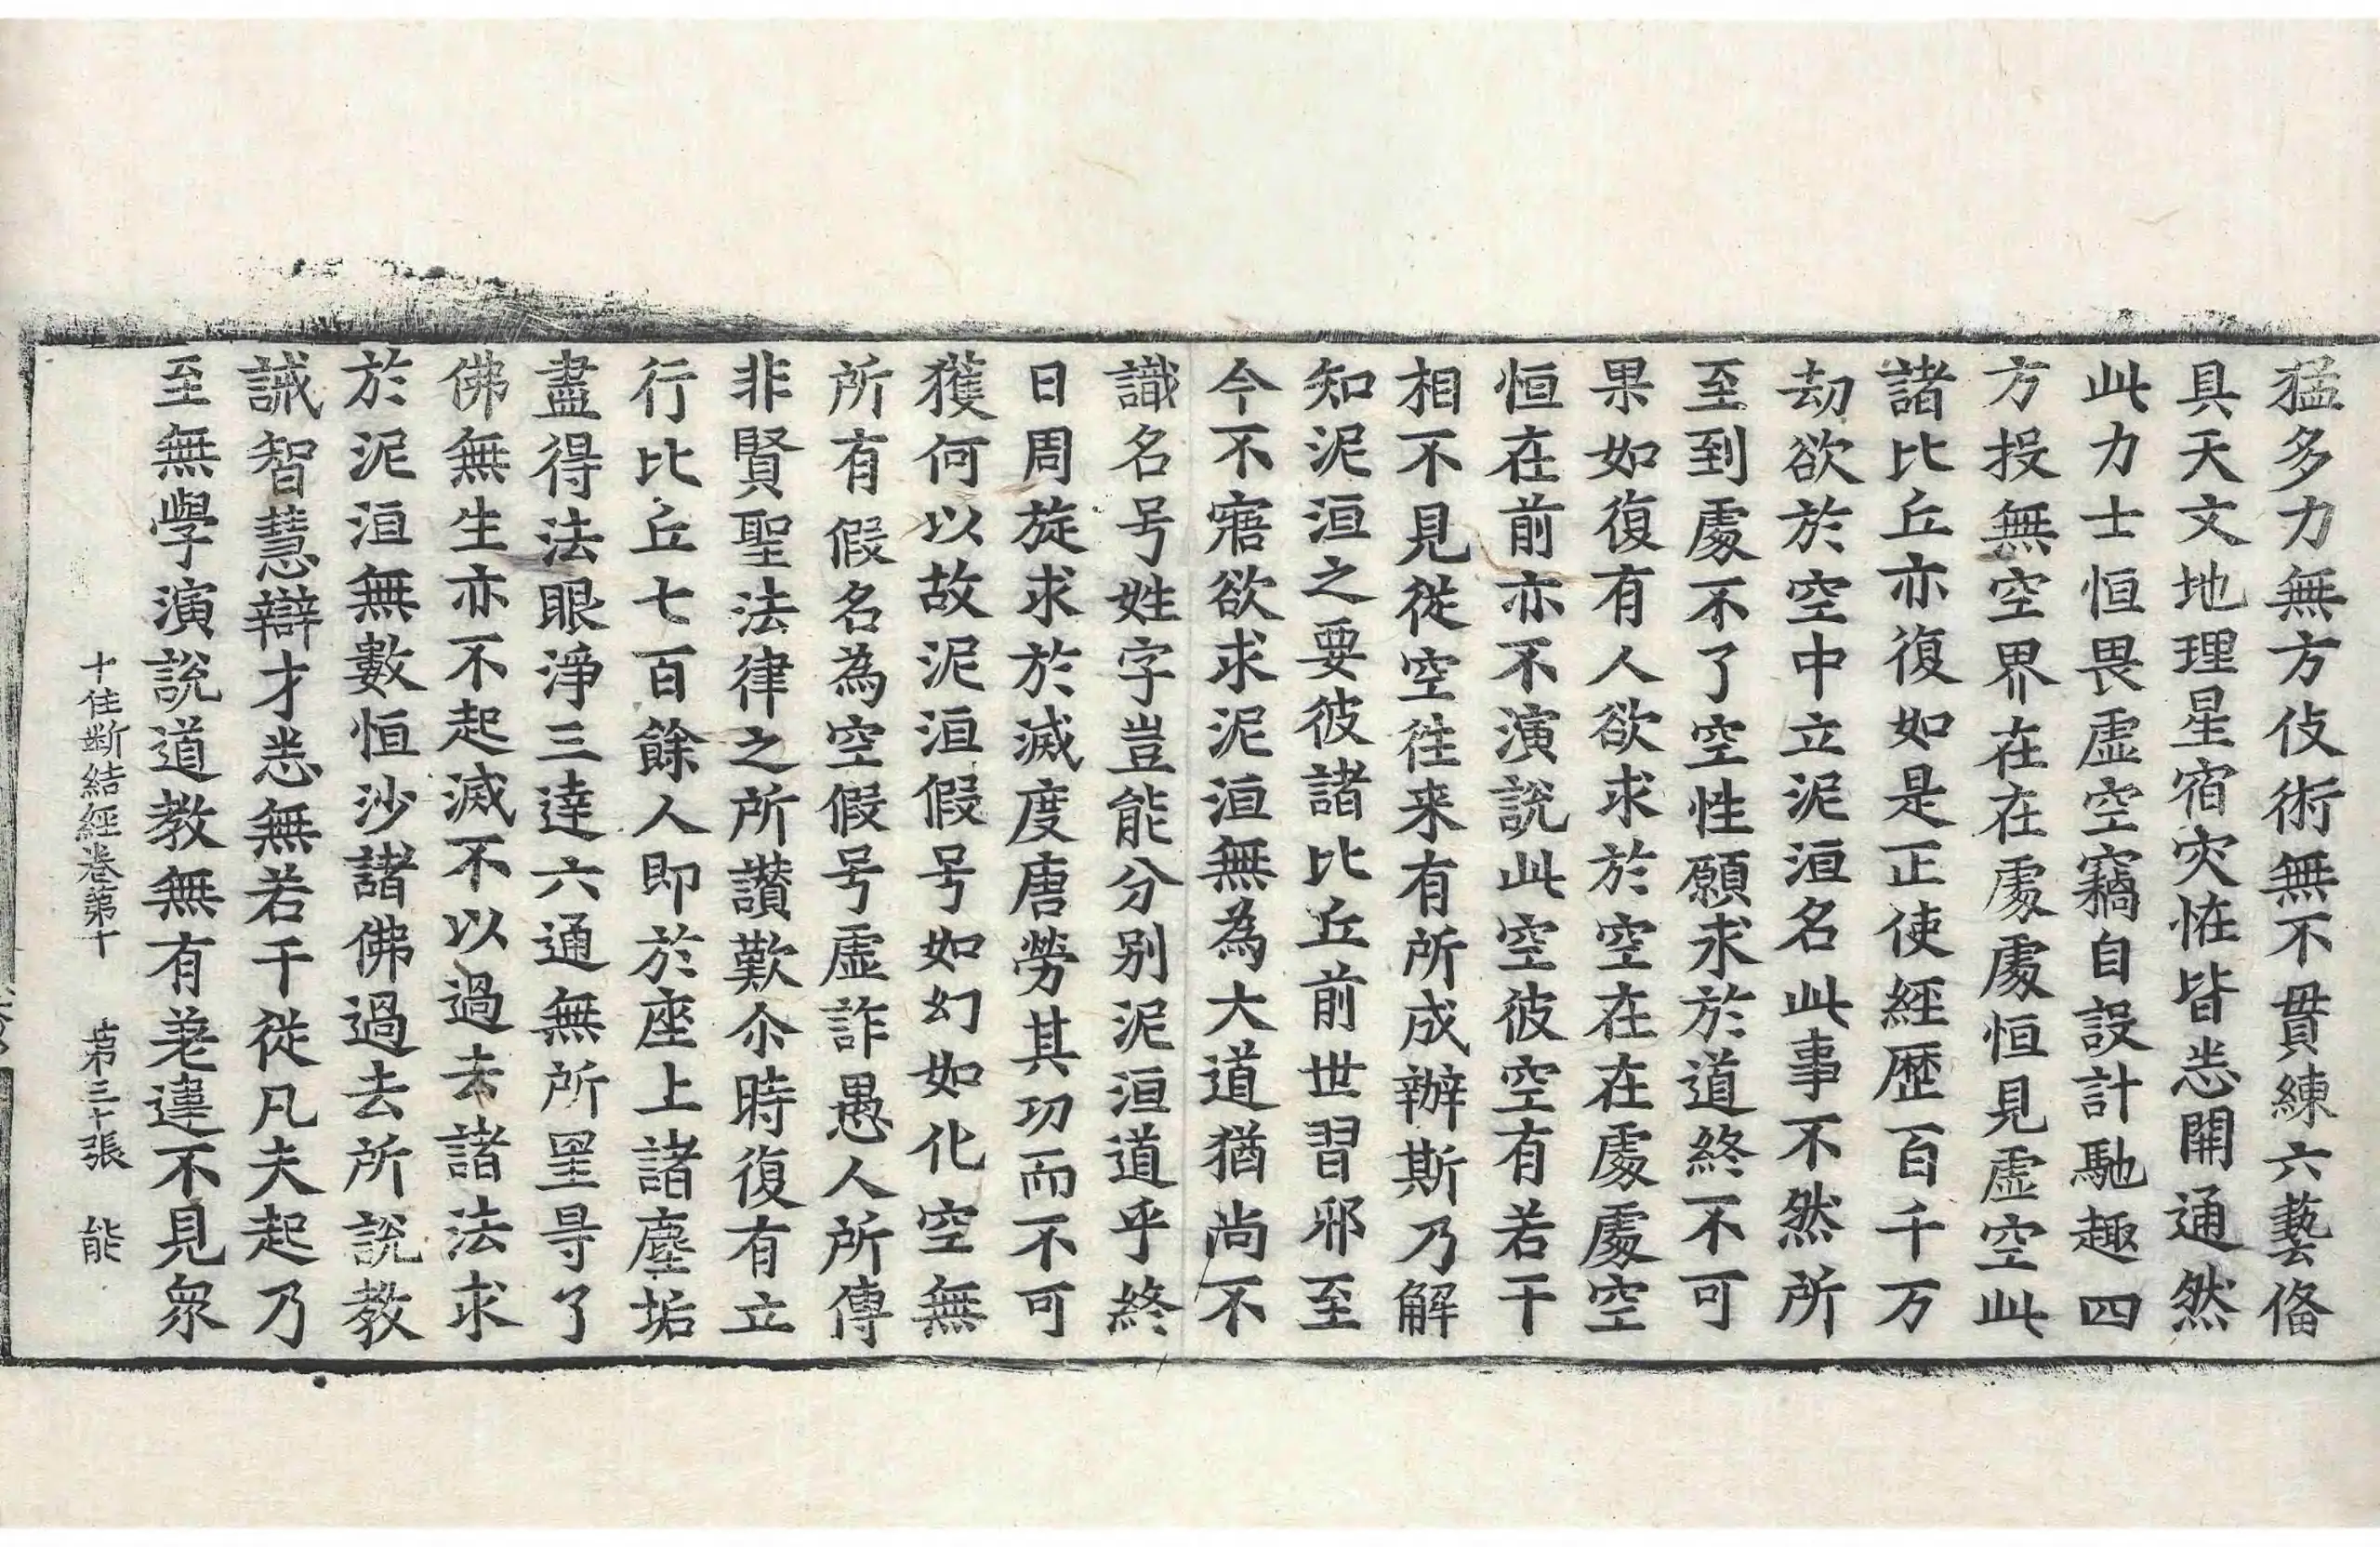 猛多力無方伎術無不貫練六藝俻
具天文地理星宿灾恠皆悉開通然
此力士恒畏虛空竊自設計馳趣四
方投無空界在在處處恒見虛空此
諸比丘亦復如是正使經歷百千万
劫欲於空中立泥洹名此事不然所
至到處不了空性願求於道終不可
果如復有人欲求於空在在處處空
恒在前亦不演說此空彼空有若干
相不見從空往来有所成辦斯乃解
知泥洹之要彼諸比丘前世習邪至
今不寤欲求泥洹無為大道猶尚不
識名号姓字豈能分別泥洹道乎終
日周旋求於滅度唐勞其功而不可
獲何以故泥洹假号如幻如化空無
所有假名為空假号虛詐愚人所傳
非賢聖法律之所讚歎尒時復有立
行比丘七百餘人即於座上諸塵垢
盡得法眼淨三達六通無所罣㝵了
佛無生亦不起滅不以過去諸法求
於泥洹無數恒沙諸佛過去所說教
誡智慧辯才悉無若干從凡夫起乃
至無學演說道教無有差違不見衆
十住斷結經卷第十 第三十張 能